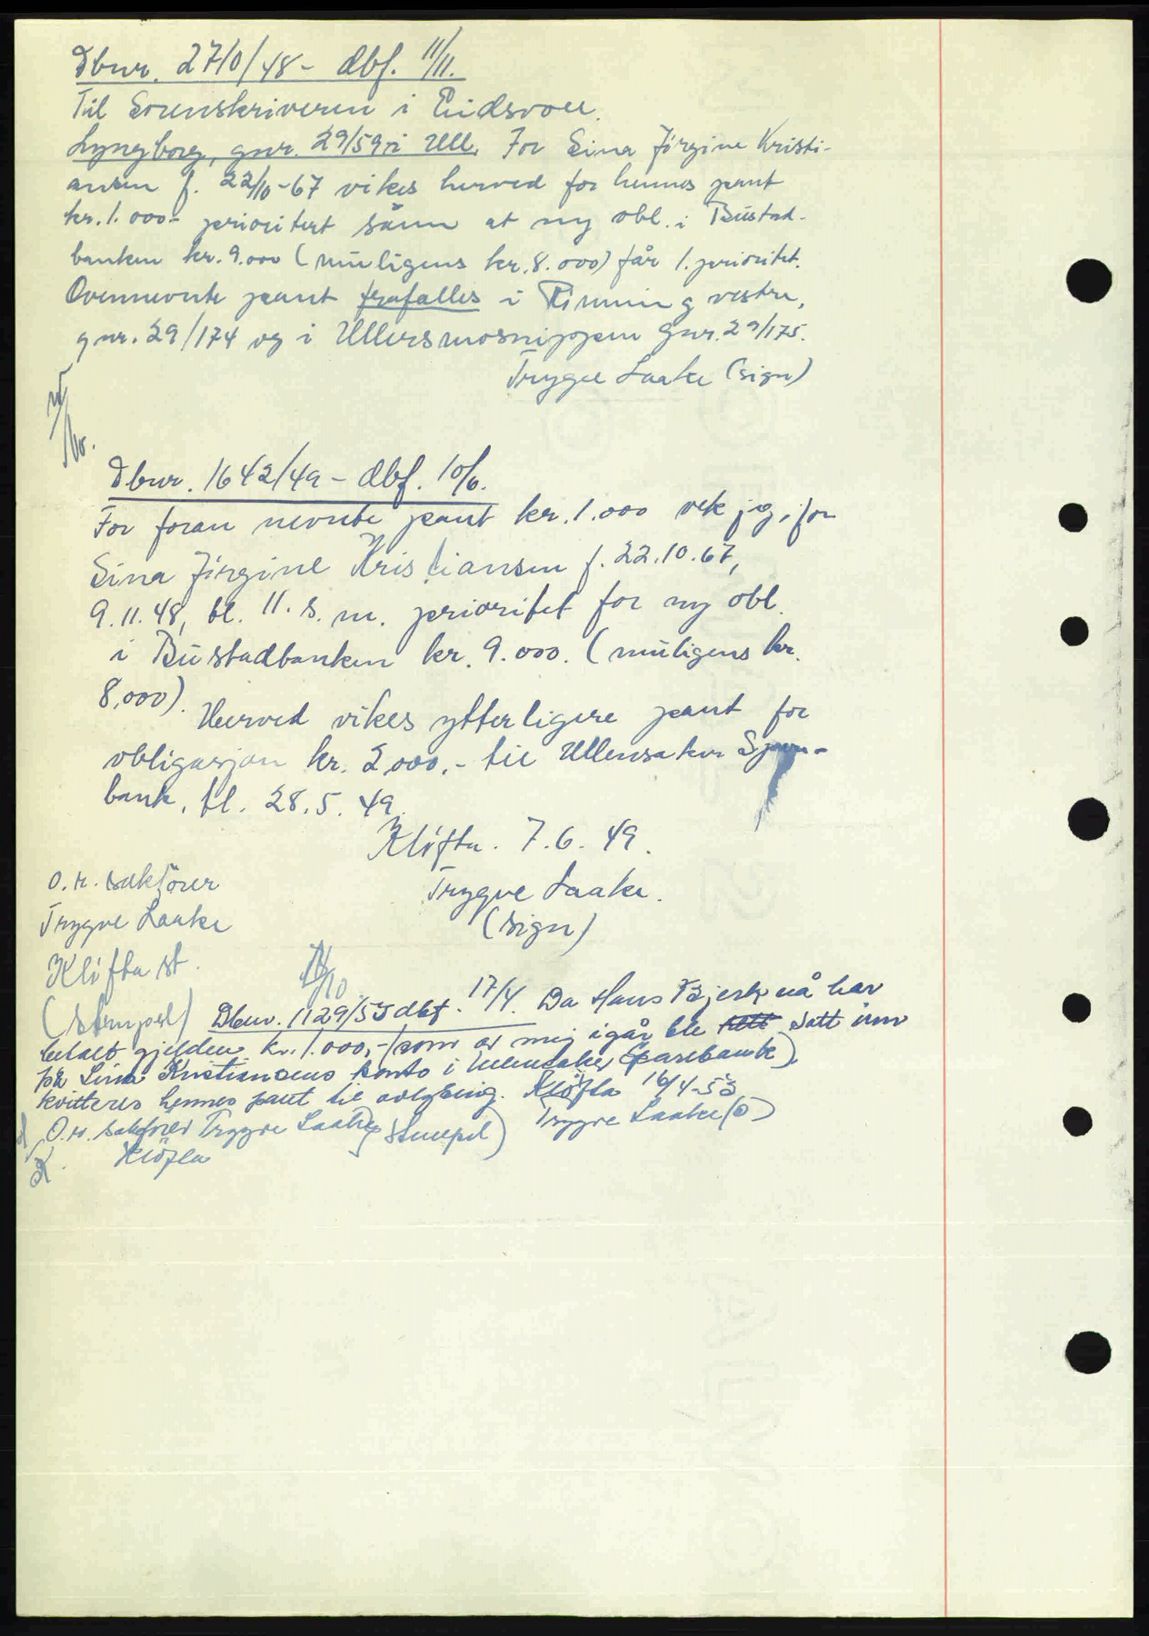 Dbnr. 2710/48 - dbf. 11/11.
Til Sorenskriveren i Eidsvoll.
Lyngborg, gnr. 29/59 i Ull. For Sina Jørgine Kristi-
ansen f. 22/10-67 vikes herved for hennes pant
kr. 1.000.- prioritert sånn at ny obl. i Bustad-
banken kr. 9.000 (muligens kr. 8.000) får 1. prioritet.
Ovennevnte pant frafalles i Rimming vestre,
gnr. 29/174 og i Ullersmosnippen gnr. 29/175.
Trygve Laake (sign)
Dbnr. 1642/49 - dbf. 10/6.
For foran nevnte pant kr. 1.000 vek jeg, for
Sina Jørgine Kristiansen f. 22.10.67,
9.11.48, tl. 11. s. m. prioritet for ny obl.
i Bustadbanken kr. 9.000. (muligens kr.
8.000).
Herved vikes ytterligere pant for
obligasjon kr. 2.000.- til Ullensaker Spare-
bank, tl. 28.5.49.
Kløfta. 7.6.49.
Trygve Laake.
(sign)
O.r. sakfører
Trygve Laake
Kløfta st.
(stempel)
Dbnr. 1129/53 dbf. 17/4. Da Hans Bjerk nå har
betalt gjelden kr. 1.000,- (som av mig igår ble satt inn
på Sina Kristiansens konto i Ullensaker Sparebank)
kvitteres hennes pant til avlysing. Kløfta 16/4-53
O.r. sakfører Trygve Laake (stempel) Trygve Laake (s)
Kløfta